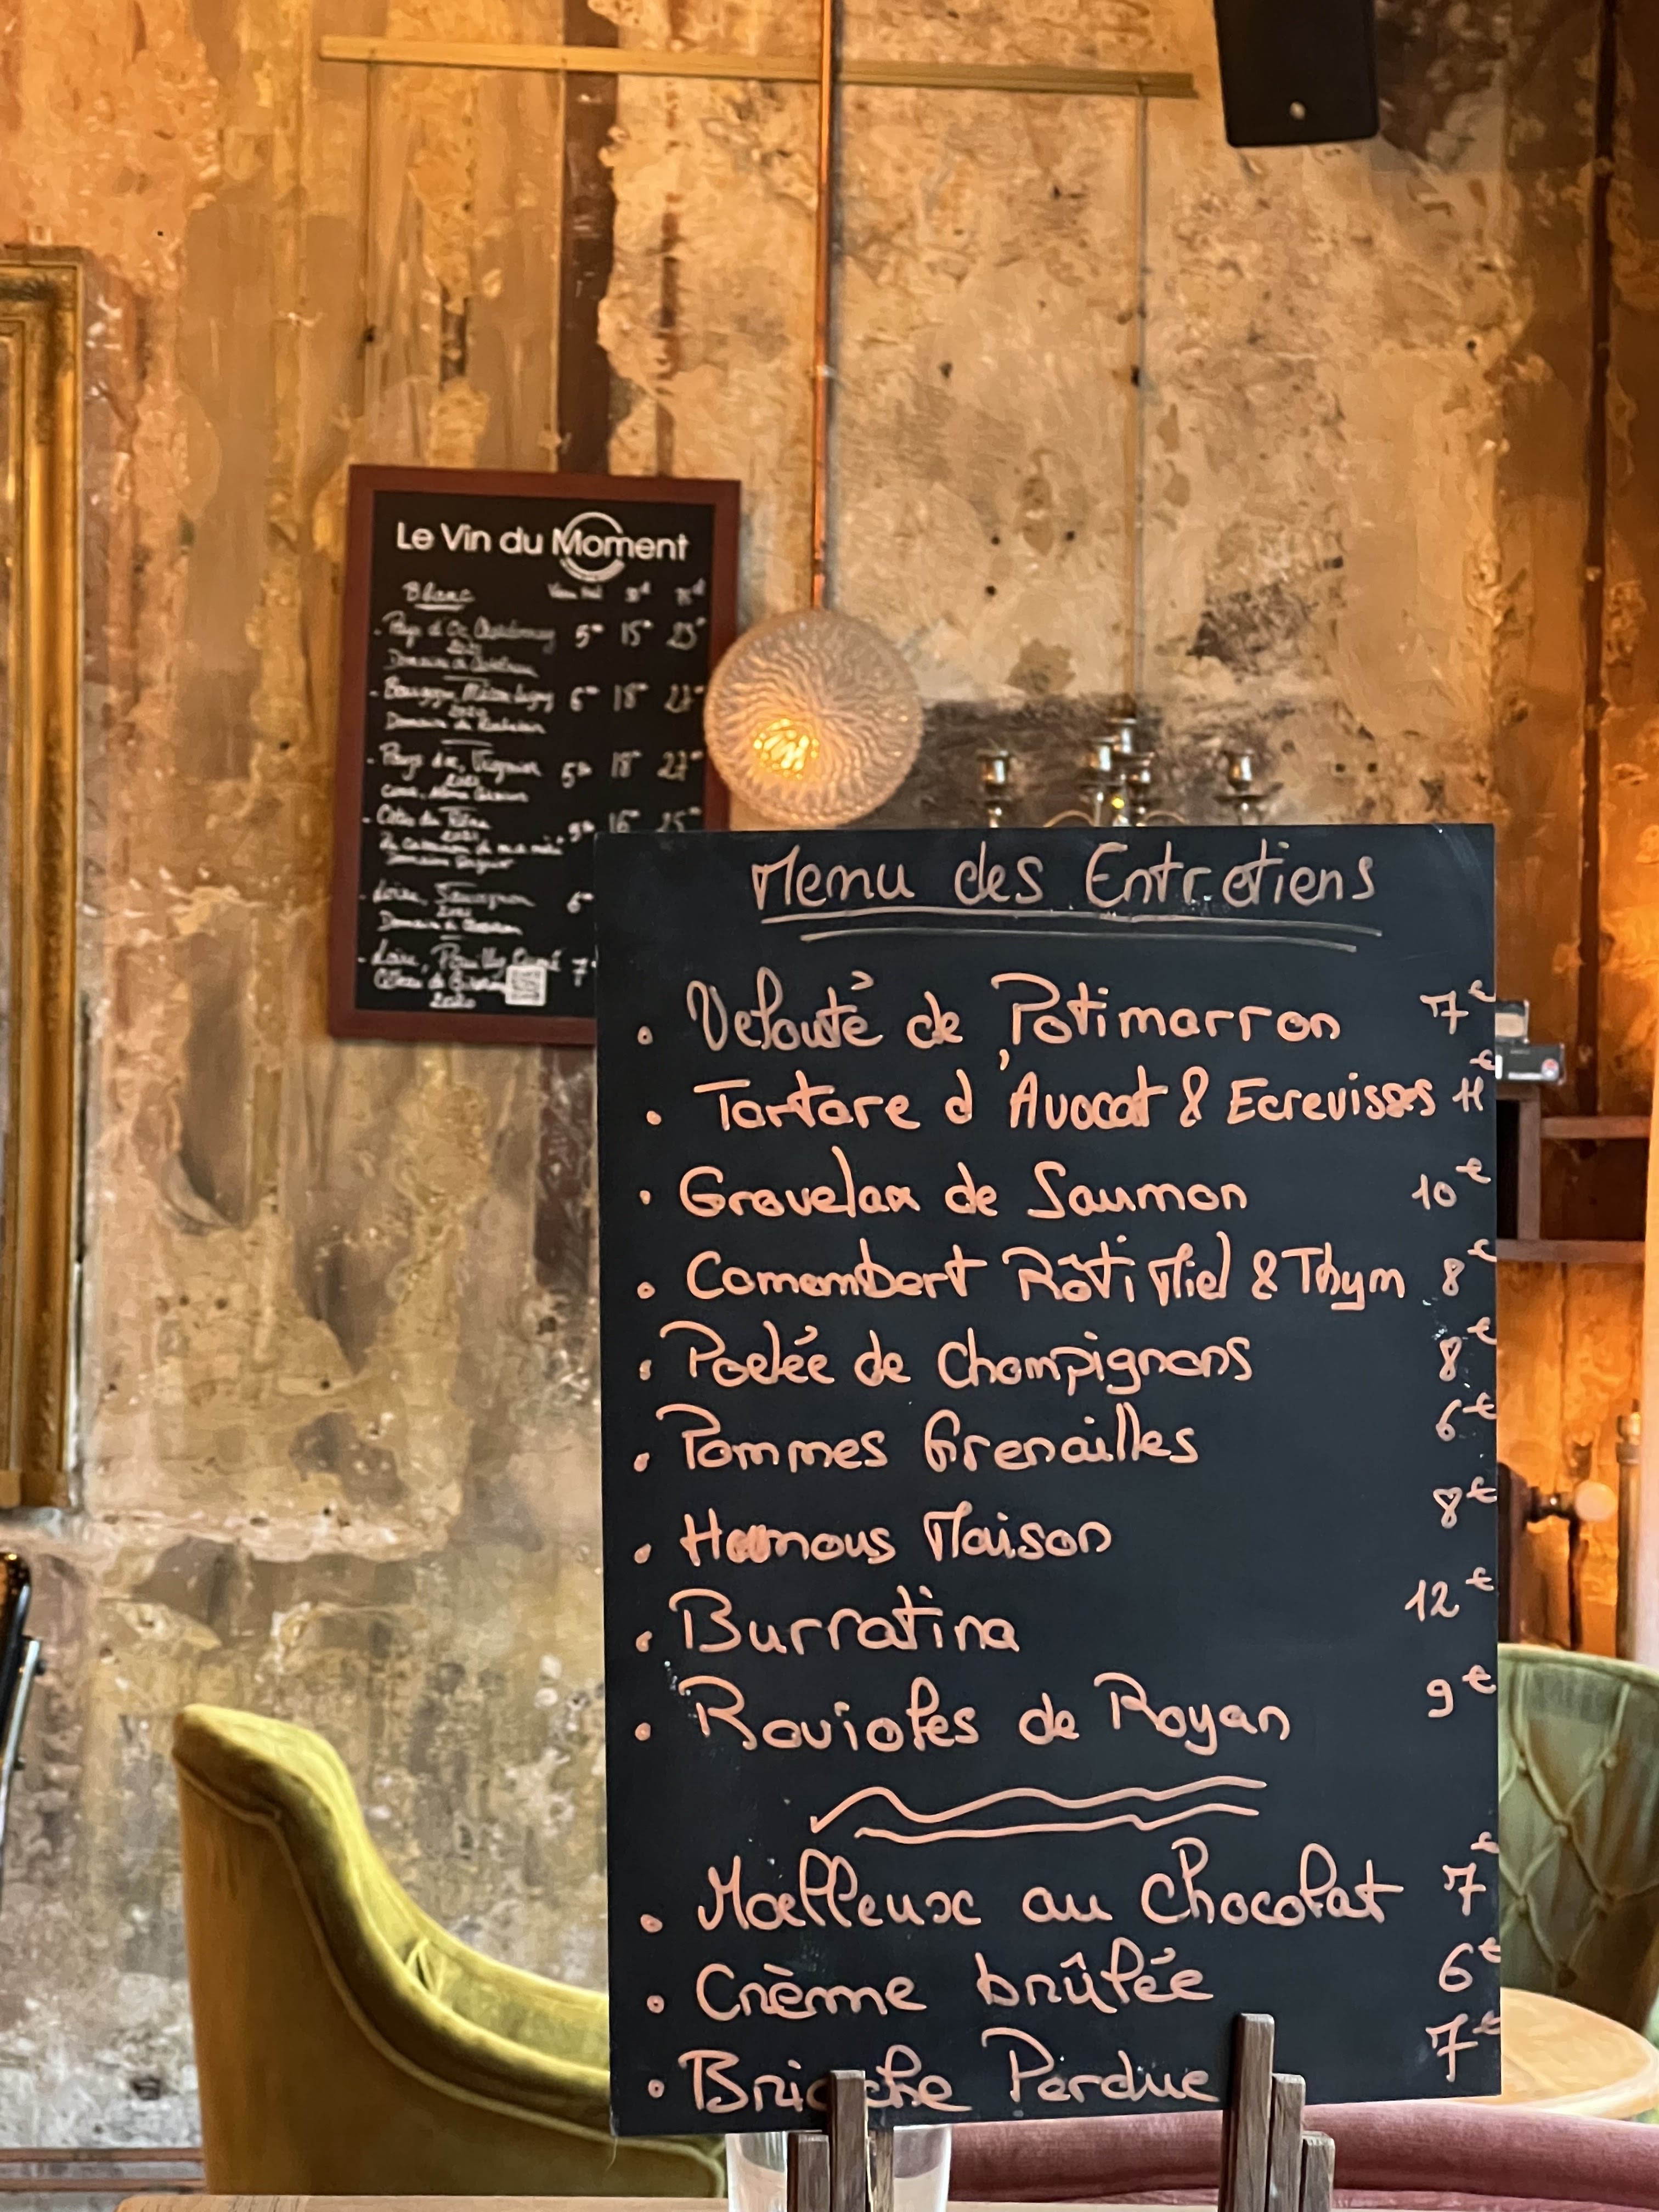 Le Vin du Moment
Blanc
5 15 23
2021
6 18 27
2020
Pays d'oc, Viognier 18 27
Côtes du Rhône 16 25
Loire, Sauvignon 6
Loire, Pouilly 7
2020
Menu des Entretiens
• Velouté de Potimarron 7€
• Tartare d'Avocat & Ecrevisses 11€
• Gravelax de Saumon 10€
• Camembert Rôti Miel & Thym 8€
• Poelée de Champignons 8€
• Pommes Grenailles 6€
• Houmous Maison 8€
• Burratina 12€
• Ravioles de Royan 9€
• Moelleux au Chocolat 7€
• Crème brûlée 6€
• Brioche Perdue 7€